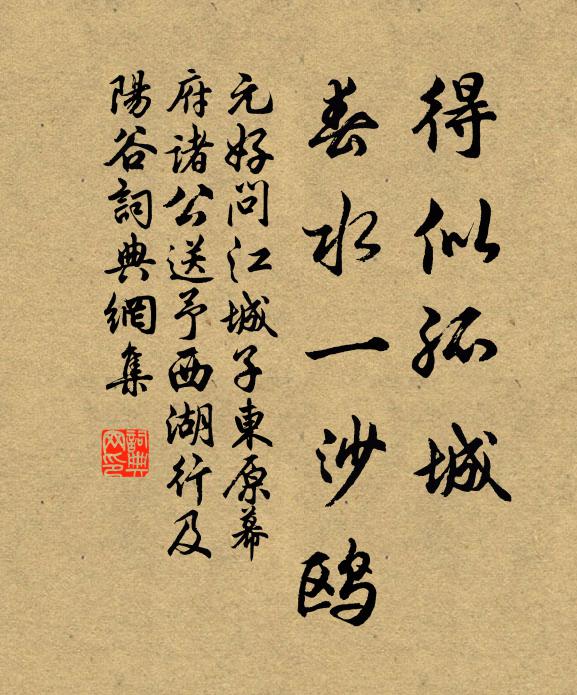 得似孤城
春水一沙鸥
元好問江城子東原幕
府諸公送予西湖行及
陽谷詞典網集
詞典
网印